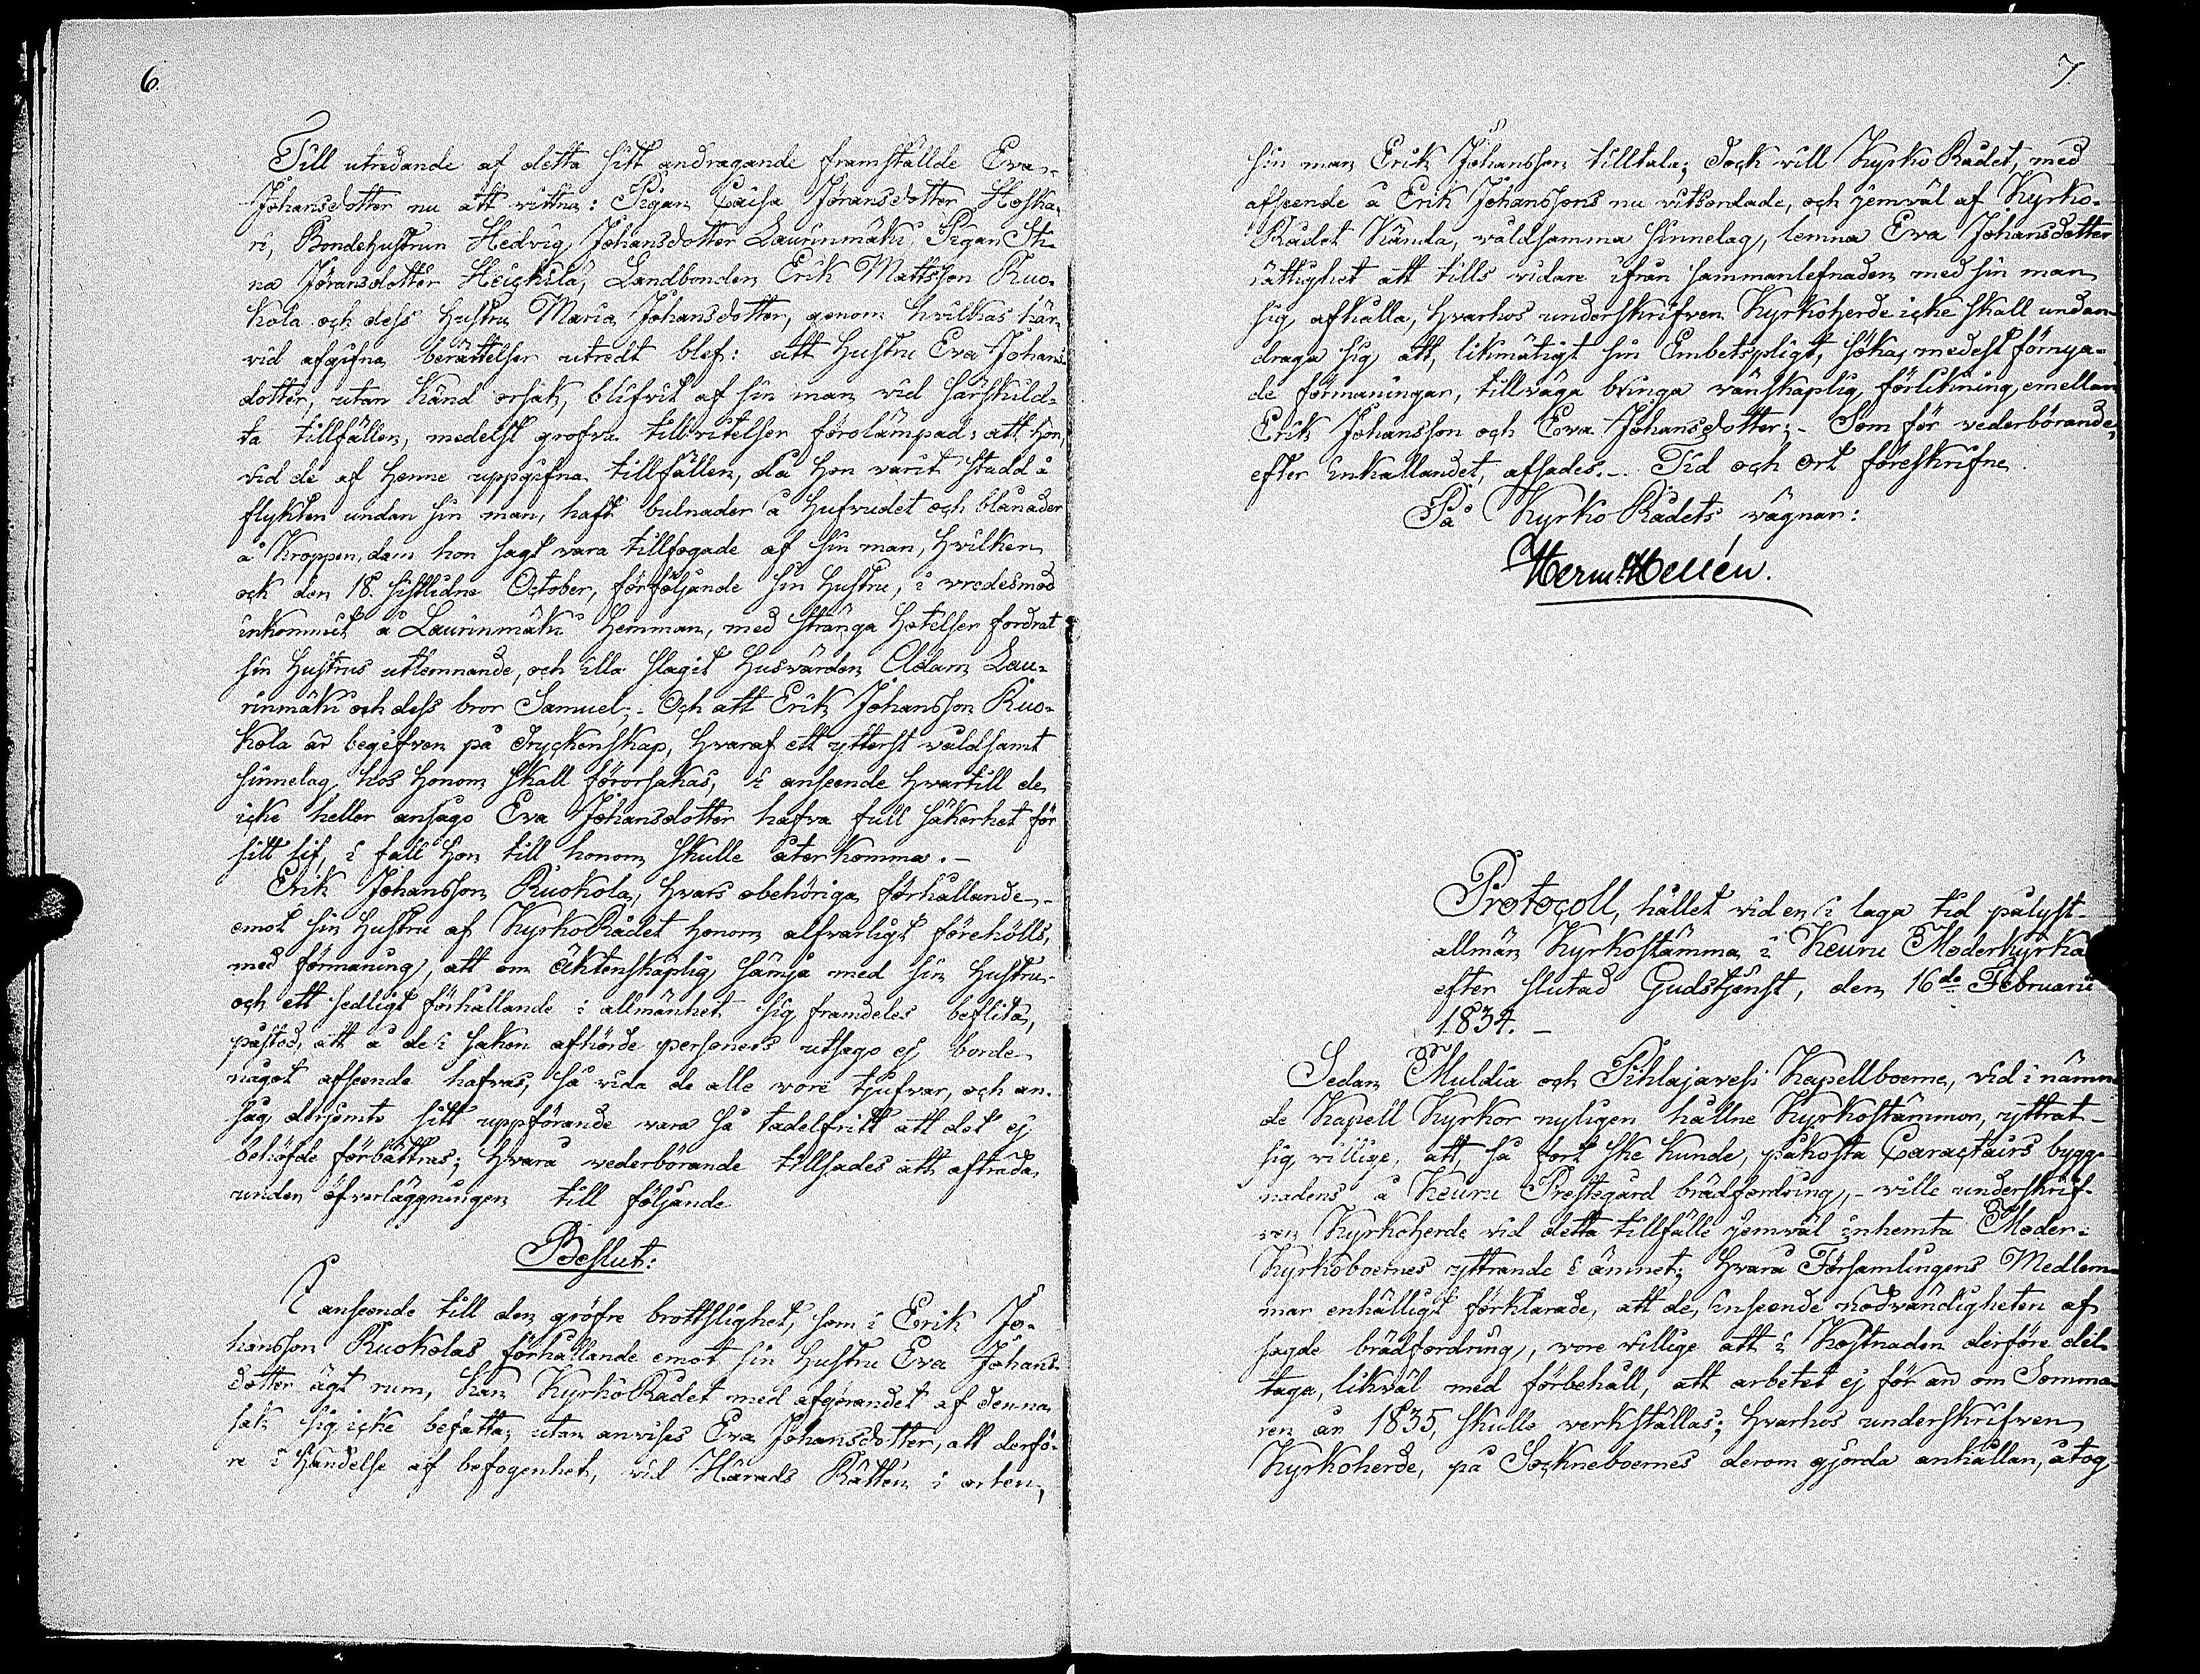 6.
Till utredande af detta sitt andragande framstälde Eva
Johansdotter nu att vittna: Pigan Caisa Jöransdotter Hoska-
ri, Bondehustrun Hedvig Johansdotter Laurinmäki, Pigan Sti-
na Jöransdotter Heickilä, Landbonden Erik Mattsson Ruo-
kola och dess hustru Maria Johansdotter, genom hvilkas här-
vid afgifna berättelser utredt blef: att hustru Eva Johans-
dotter, utan känd orsak, blifvit af sin man vid särskild-
ta tillfällen, medelst grofva tillvitelser förolämpad; att hon,
vid de af henne uppgifna tillfällen, då hon varit stadd å
flykten undan sin man, haft bulnader å hufvudet och blånader
å kroppen, dem hon sagt vara tillfogade af sin man, hvilken
ock den 18. sistlidne October, förföljande sin hustru, i vredesmod
inkommit å Laurinmäki Hemman, med stränga hotelser fordrat
sin hustrus utlemnande, och illa slagit husvärden Adam Lau-
rinmäki och dess bror Samuel; - Och att Erik Johansson Ruo-
kola är begifven på dryckenskap, hvaraf ett ytterst våldsamt
sinnelag hos honom skall förorsakas, i anseende hvartill de
icke heller ansågo Eva Johansdotter hafva full säkerhet för
sitt lif, i fall hon till honom skulle återkomma. -
Erik Johansson Ruokola, hvars obehöriga förhållande
emot sin hustru af KyrkoRådet honom alfvarligt förehölls,
med förmaning, att om äktenskaplig sämja med sin hustru
och ett sedligt förhållande i allmänhet sig framdeles beflita,
påstod, att å de i saken afhörde personers utsago ej borde
något afseende hafvas, så vida de alle vore tjufvar, och an-
såg derjemte sitt uppförande vara så tadelfritt att det ej
behöfde förbättras; hvarå vederbörande tillsades att afträda
under öfverläggningen till följande
Beslut:
I anseende till den gröfre brottslighet, som i Erik Jo-
hansson Ruokolas förhållande emot sin hustru Eva Johans-
dotter ägt rum, kan KyrkoRådet med afgörandet af denna
sak sig icke befatta; utan anvises Eva Johansdotter, att derfö-
re i händelse af befogenhet, vid Härads Rätten i orten,
7.
sin man Erik Johansson tilltala; dock vill KyrkoRådet, med
afseende å Erik Johanssons nu vitsordade, och jemväl af Kyrko-
Rådet kända, våldsamma sinnelag, lemna Eva Johansdotter
rättighet att tills vidare ifrån sammanlefnaden med sin man
sig afhålla, hvarhos underskrifven Kyrkoherde icke skall undan-
draga sig att, likmätigt sin Embetspligt, söka medelst förnya-
de förmaningar, tillväga bringa vänskaplig förlikning emellan
Erik Johansson och Eva Johansdotter; - Som för vederbörande,
efter inkallandet, afsades. - Tid och ort föreskrifne.
På Kyrko Rådets vägnar:
Herm. Hellén.
Protocoll, hållet vid en i laga tid pålyst
allmän Kyrkostämma i Keuru Moderkyrka
efter slutad Gudstjenst, den 16de Februarii
1834. -
Sedan Muldia och Pihlajavesi Kapellboerne, vid i nämn-
de Kapell Kyrkor nyligen hållne Kyrkostämmor, yttrat
sig villige, att, så fort ske kunde, påkosta Caractairs bygg-
nadens å Keuru Prestegård brädfordring, - ville underskrif-
ven Kyrkoherde vid detta tillfälle jemväl inhemta Moder-
Kyrkoboernes yttrande i ämnet; hvarå Församlingens Medlem-
mar enhälligt förklarade, att de, inseende nödvändigheten af
sagde brädfordring, vore villige att i kostnaden derföre del-
taga, likväl med förbehåll, att arbetet ej för än om Somma-
ren år 1835, skulle verkställas; hvarhos underskrifven
Kyrkoherde, på Sockneboernes derom gjorda anhållan, åtog